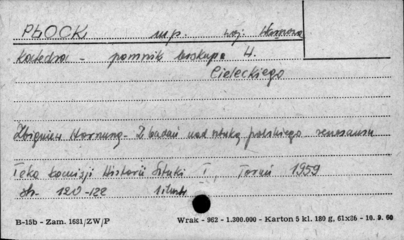 PŁOCK mp. woj. Warszawa
Katedra - pomnik biskupa A.
Cieleckiego
Zbigniew Hornung - Z badań nad sztuką polskiego renesansu
Teka Komisji Historii Sztuki I, Toruń 1959
str. 120-122
B-15b - Zam. 1681/ZW/P Wrak - 962 - 1.300.000 - Karton 5 kl. 180 g, 61x86 - 10. 9. 60